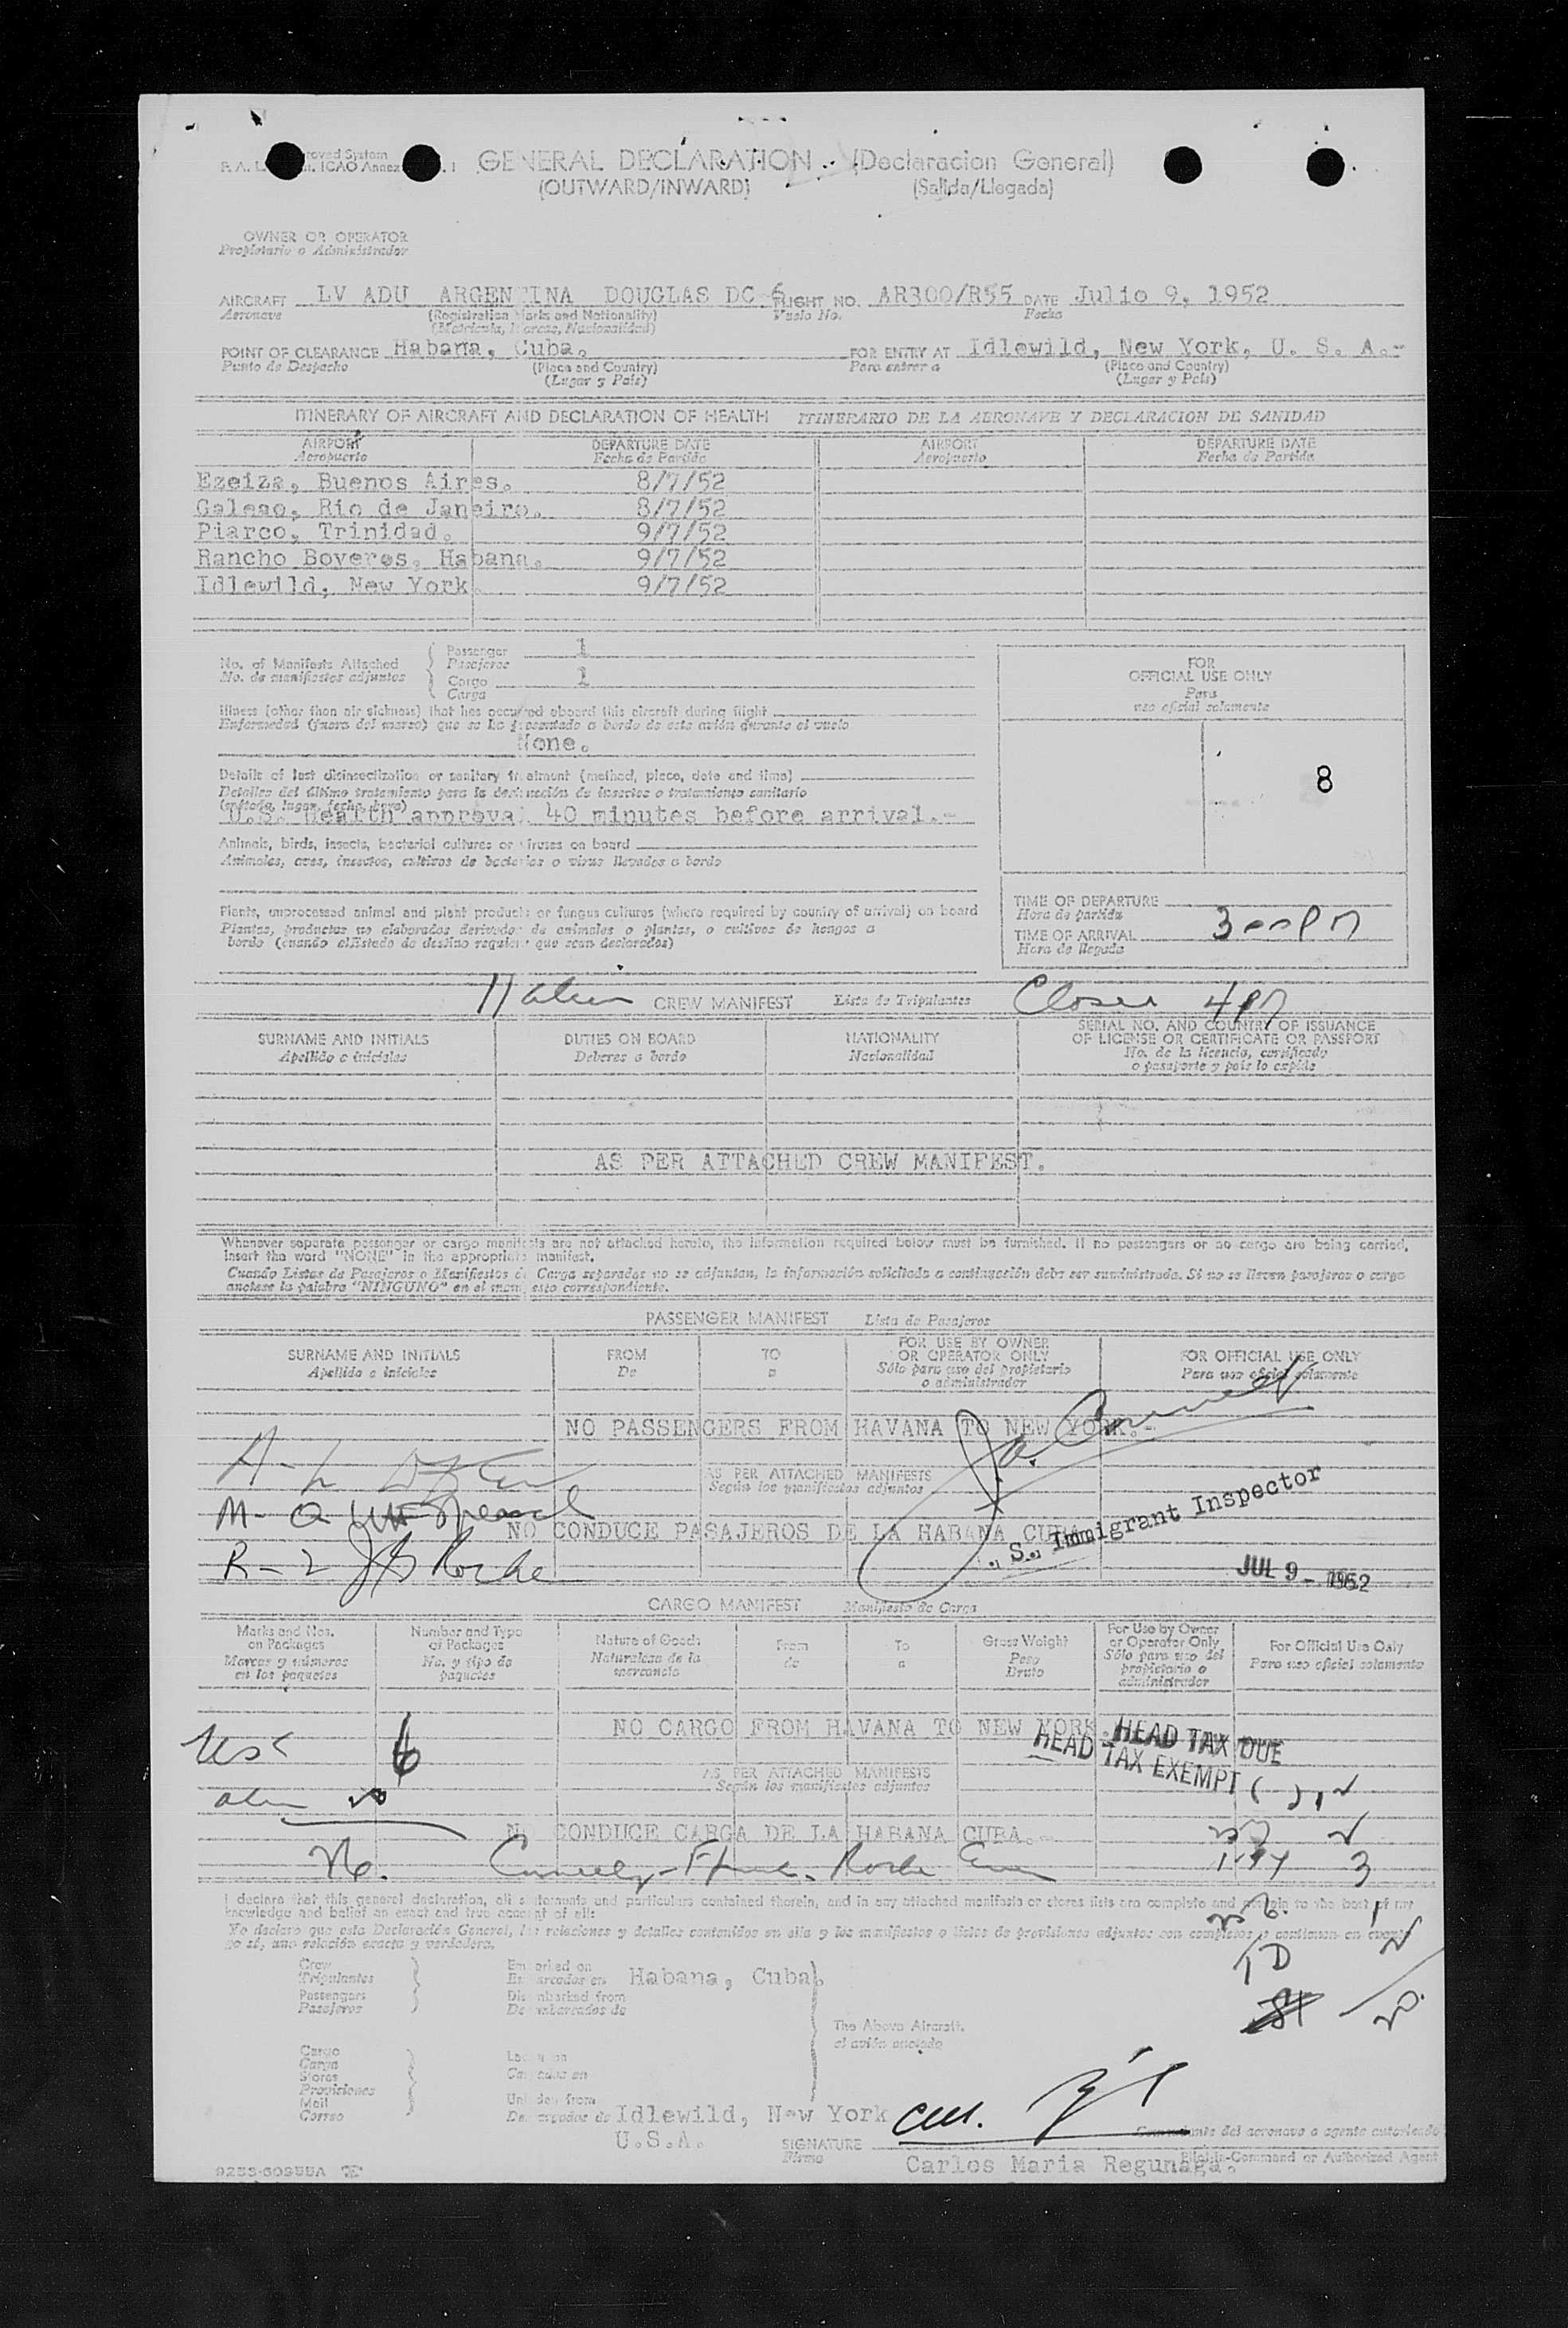 GENERAL DECLARATION (Declaracion General)
(OUTWARD/INWARD) (Salida/Llegada)
OWNER OR OPERATOR
Propietario o Administrador
AIRCRAFT LV ADU ARGENTINA DOUGLAS DC-6 FLIGHT NO. AR300/R55 DATE Julio 9, 1952
Aeronave (Registration Marks and Nationality) Vuelo No. Fecha
(Matricula, Marcas, Nacionalidad)
POINT OF CLEARANCE Habana, Cuba. FOR ENTRY AT Idlewild, New York, U. S. A.-
Punto de Despacho (Place and Country) Para entrar a (Place and Country)
(Lugar y País) (Lugar y País)
ITINERARY OF AIRCRAFT AND DECLARATION OF HEALTH ITINERARIO DE LA AERONAVE Y DECLARACION DE SANIDAD
AIRPORT DEPARTURE DATE AIRPORT DEPARTURE DATE
Aeropuerto Fecha de Partida Aeropuerto Fecha de Partida
Ezeiza, Buenos Aires. 8/7/52
Galeao, Rio de Janeiro. 8/7/52
Piarco, Trinidad. 9/7/52
Rancho Boyeros, Habana. 9/7/52
Idlewild, New York. 9/7/52
No. of Manifests Attached Passenger 1
No. de manifiestos adjuntos Pasajeros
Cargo 1
Carga
FOR
OFFICIAL USE ONLY
Para
uso oficial solamente
8
Illness (other than air sickness) that has occurred aboard this aircraft during flight
Enfermedad (fuera del mareo) que se ha presentado a bordo de este avión durante el vuelo
None.
Details of last disinsectization or sanitary treatment (method, place, date and time)
Detalles del último tratamiento para la destrucción de insectos o tratamiento sanitario
(método, lugar, fecha, hora)
U.S. Health approval 40 minutes before arrival.-
Animals, birds, insects, bacterial cultures or viruses on board
Animales, aves, insectos, cultivos de bacterias o virus llevados a bordo
Plants, unprocessed animal and plant products or fungus cultures (where required by country of arrival) on board
Plantas, productos no elaborados derivados de animales o plantas, o cultivos de hongos a
bordo (cuando el Estado de destino requiera que sean declarados)
TIME OF DEPARTURE
Hora de partida
TIME OF ARRIVAL 3 00 PM
Hora de llegada
CREW MANIFEST Lista de Tripulantes Closed 4 PM
SURNAME AND INITIALS DUTIES ON BOARD NATIONALITY SERIAL NO. AND COUNTRY OF ISSUANCE
Apellido e iniciales Deberes a bordo Nacionalidad OF LICENSE OR CERTIFICATE OR PASSPORT
No. de la licencia, certificado
o pasaporte y país lo expide
AS PER ATTACHED CREW MANIFEST.
Whenever separate passenger or cargo manifests are not attached hereto, the information required below must be furnished. If no passengers or no cargo are being carried,
insert the word "NONE" in the appropriate manifest.
Cuando Listas de Pasajeros o Manifiestos de Carga separados no se adjuntan, la información solicitada a continuación debe ser suministrada. Si no se llevan pasajeros o carga
anotese la palabra "NINGUNO" en el manifiesto correspondiente.
PASSENGER MANIFEST Lista de Pasajeros
SURNAME AND INITIALS FROM TO FOR USE BY OWNER FOR OFFICIAL USE ONLY
Apellido e iniciales De a OR OPERATOR ONLY Para uso oficial solamente
Sólo para uso del propietario
o administrador
NO PASSENGERS FROM HAVANA TO NEW YORK.-
AS PER ATTACHED MANIFESTS
Según los manifiestos adjuntos
NO CONDUCE PASAJEROS DE LA HABANA CUBA.
R-2 Roche
S. Immigrant Inspector
JUL 9 - 1952
CARGO MANIFEST Manifiesto de Carga
Marks and Nos. Number and Type Nature of Goods From To Gross Weight For Use by Owner For Official Use Only
on Packages of Packages Naturaleza de la de a Peso or Operator Only Para uso oficial solamente
Marcas y números No. y tipo de mercancía Bruto Sólo para uso del
en los paquetes paquetes propietario o
administrador
NO CARGO FROM HAVANA TO NEW YORK.
HEAD TAX DUE
HEAD TAX EXEMPT
6
AS PER ATTACHED MANIFESTS
Según los manifiestos adjuntos
NO CONDUCE CARGA DE LA HABANA CUBA.-
3
I declare that this general declaration, all statements and particulars contained therein, and in any attached manifests or stores lists are complete and contain to the best of my
knowledge and belief an exact and true account of all:
Yo declaro que esta Declaración General, las relaciones y detalles contenidos en ella y los manifiestos o listas de provisiones adjuntos son completos y contienen en cuanto
yo sé, una relación exacta y verdadera.
Crew Embarked on
Tripulantes Embarcados en Habana, Cuba.
Passengers Disembarked from
Pasajeros Desembarcados de
The Above Aircraft.
el avión anotado
Cargo Laden on
Carga Cargados en
Stores
Provisiones
Mail Unladen from
Correo Descargados de Idlewild, New York
U.S.A.
SIGNATURE
Firma
Comandante del aeronave o agente autorizado
Pilot-in-Command or Authorized Agent
Carlos Maria Regunaga.
9253-60955A